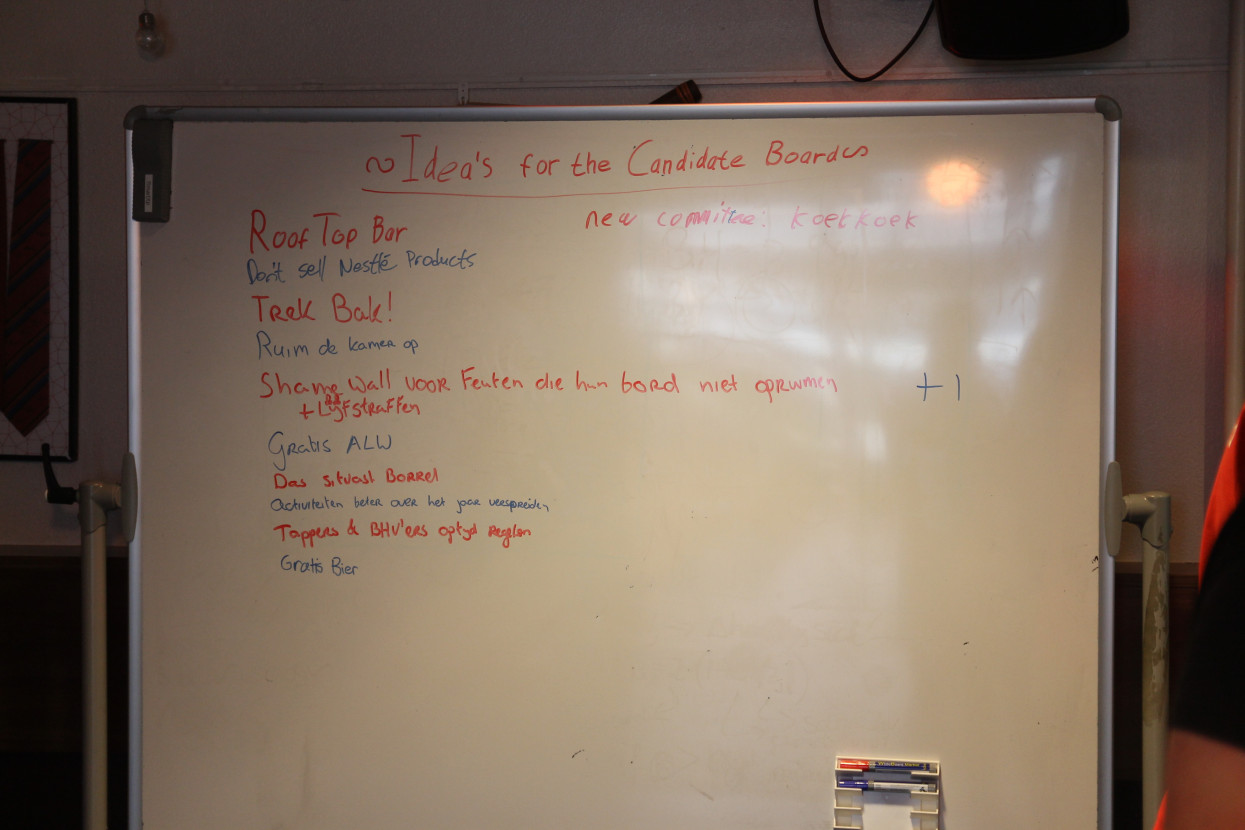 ~ Idea's for the Candidate Boards
Roof Top Bar
new committee: koekkoek
Don't sell Nestlé Products
Trek Bak!
Ruim de kamer op
Shame Wall voor Feuten die hun bord niet opruimen +1
+ Lijfstraffen
Gratis ALW
Das situast Borrel
Activiteiten beter over het jaar verspreiden
Tappers & BHV'ers optijd regelen
Gratis Bier